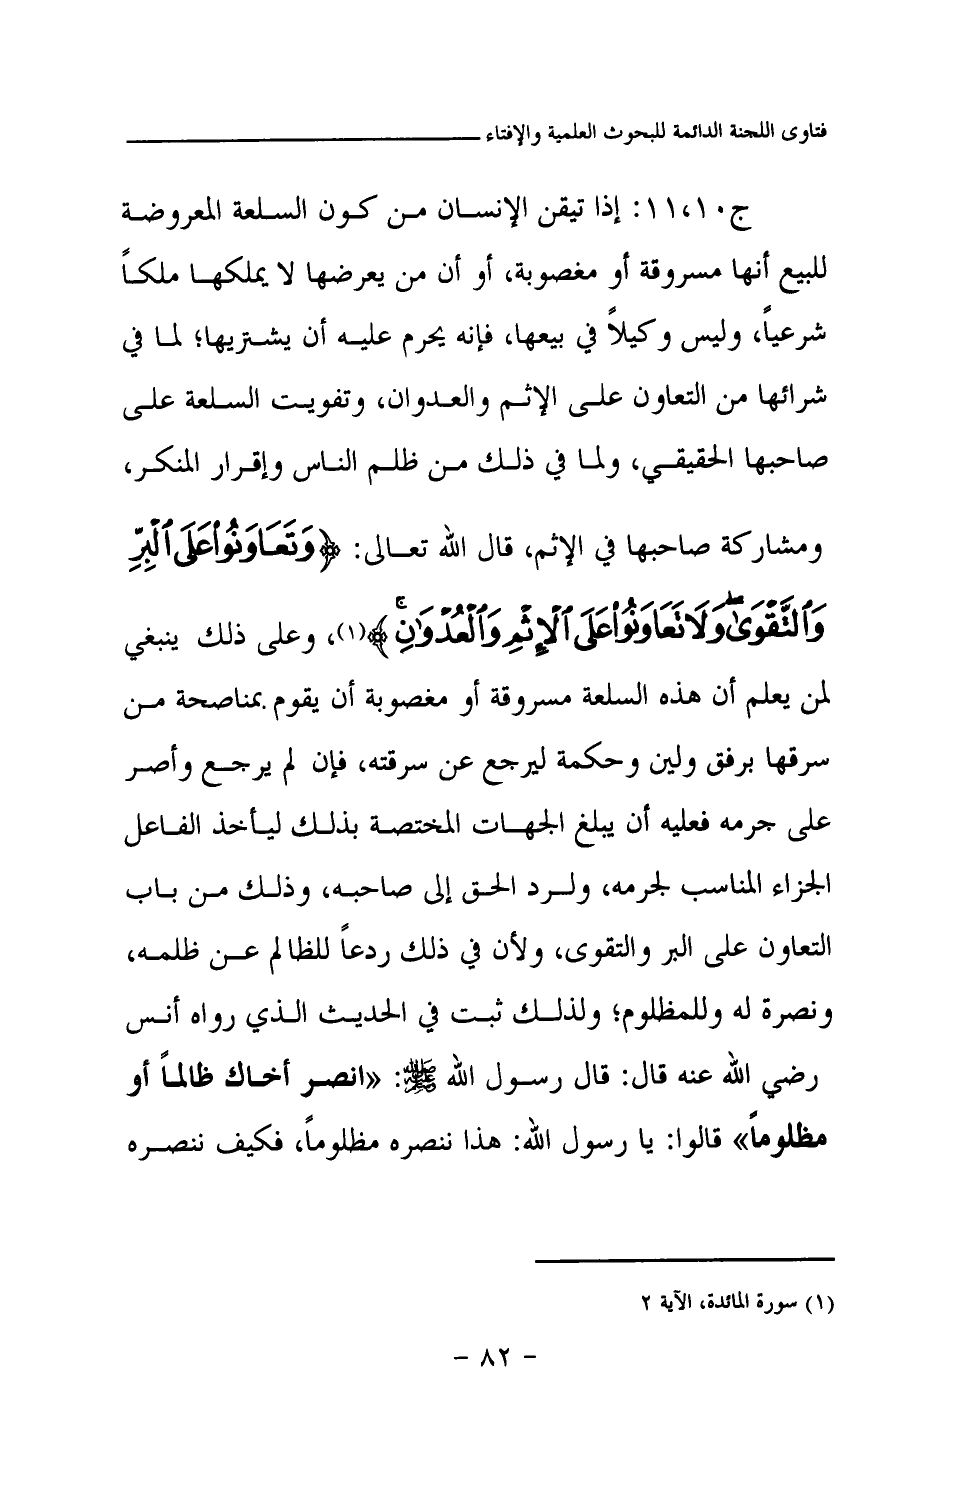 فتاوى اللجنة الدائمة للبحوث العلمية والإفتاء
ج١١،١٠: إذا تيقن الإنسان من كون السلعة المعروضة
للبيع أنها مسروقة أو مغصوبة، أو أن من يعرضها لا يملكها ملكاً
شرعياً، وليس وكيلاً في بيعها، فإنه يحرم عليه أن يشتريها؛ لما في
شرائها من التعاون على الإثم والعدوان، وتفويت السلعة على
صاحبها الحقيقي، ولما في ذلك من ظلم الناس وإقرار المنكر،
ومشاركة صاحبها في الإثم، قال الله تعالى: ﴿وَتَعَاوَنُوا۟ عَلَى ٱلْبِرِّ
وَٱلتَّقْوَىٰ ۖ وَلَا تَعَاوَنُوا۟ عَلَى ٱلْإِثْمِ وَٱلْعُدْوَٰنِ ۚ﴾(١)، وعلى ذلك ينبغي
لمن يعلم أن هذه السلعة مسروقة أو مغصوبة أن يقوم بمناصحة من
سرقها برفق ولين وحكمة ليرجع عن سرقته، فإن لم يرجع وأصر
على جرمه فعليه أن يبلغ الجهات المختصة بذلك ليأخذ الفاعل
الجزاء المناسب لجرمه، ولرد الحق إلى صاحبه، وذلك من باب
التعاون على البر والتقوى، ولأن في ذلك ردعاً للظالم عن ظلمه،
ونصرة له وللمظلوم؛ ولذلك ثبت في الحديث الذي رواه أنس
رضي الله عنه قال: قال رسول الله ﷺ: «انصر أخاك ظالماً أو
مظلوماً» قالوا: يا رسول الله: هذا ننصره مظلوماً، فكيف ننصره
(١) سورة المائدة، الآية ٢
- ٨٢ -